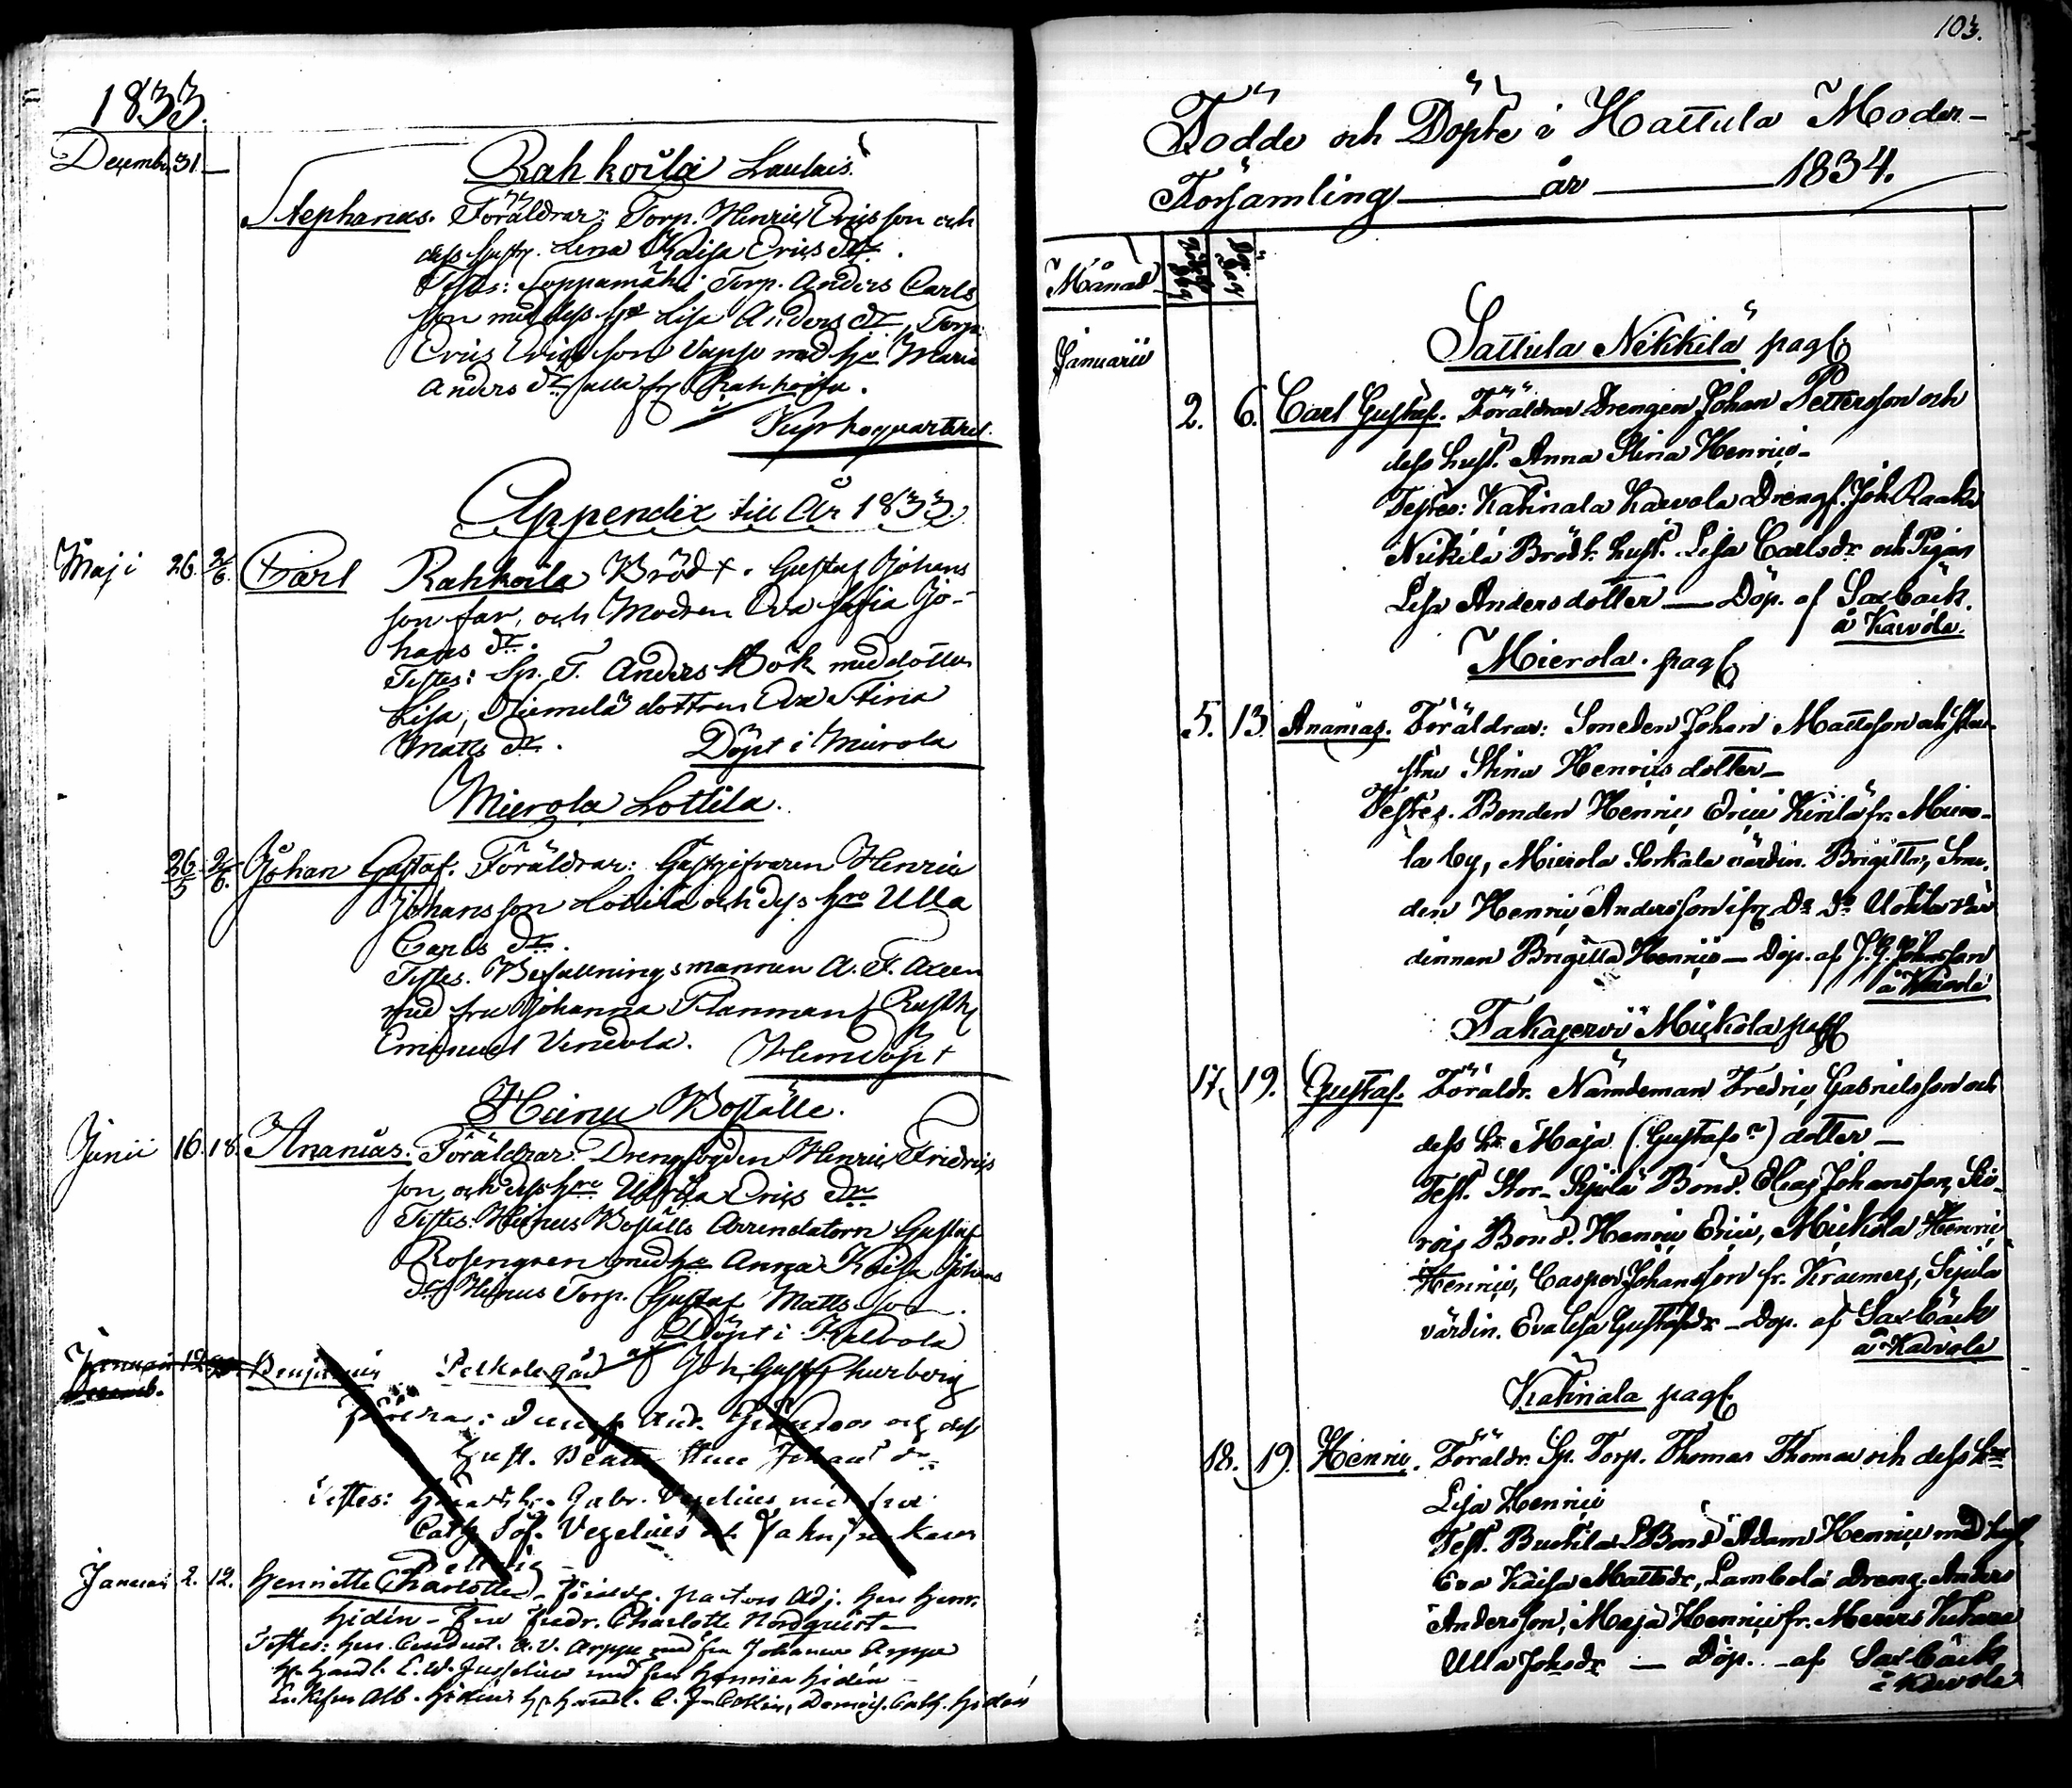 1833.
Decemb. 31. —
Rahkoila Laulais.
Stephanus. Föräldrar: Torp. Henric Ericsson och
dess hustr. Lena Kaisa Erics dr.
Testes: Soppamäki Torp. Anders Carls
son med dess hu Lisa Anders dr, Torp.
Eric Ericsson med hu Maria
Anders dr, alla fr. Rahkoila.
Appendix till År 1833.
Maji 26. 2/6. Carl Rahkoila Bröd +. Gustaf Johans
son far, och Modren Eva Sofia Jo-
hans dr.
Testes: Sp. T. Anders Bök med dotter
Lisa, Niemelä dottren Eva Stina
Matts dr. Döpt i Mierola
Mierola Lottila.
26/5 2/6. Johan Gustaf. Föräldrar: Gästgifvaren Henric
Johansson Lottila och dess hro Ulla
Carls dr.
Testes. Befallningsmannen A. F. Axeen
med fru Johanna Planman,
Emanuel Uneola. Hemdöpt
Heinu Boställe.
Junii 16. 18. Ananias. Föräldrar: Drengfogden Henric Fredrics
son, och dess hro Ulrika Erics dr.
Testes: Heinus Boställs Arrendatorn Gustaf
Rosengren med hu Anna Kaisa Johans
dr, Heinus Torp. Gustaf Matts son.
Döpt i Kalvola
af Joh. Gust. Thurberg
Januari 12.
Decemb. Benjamin Pelkola gård
Föräldrar: And. och dess
hust. Beata Johans dr
Testes: Gabr. Vegelius med fru
Cath. Sof. Vegelius
Januari 2. 12. Henriette Charlotte, Föräldr. pastors Adj. herr Henr.
Hidén – fru Fredr. Charlotte Nordquist –
Testes: herr Conduct. A. V. Arppe med fru Johanna Arppe
hr Handl. E. W. Juselius med fru Henrica Hidén –
Alb. Hidén, hr Handl. C. J. Demois. Cath. Hidén
103.
Födde och Döpte i Hattula Moder-
Församling — år — 1834.
Månad Född Dag Döp. Dag
Januarii
Sattula Nikkilä pag.
2. 6. Carl Gustaf. Föräldrar Drengen Johan Pettersson och
dess hust. Anna Stina Henrics-
Testes: Katinala Kaevola Dreng. Joh. Raake
Nickilä Brödt. hust. Lisa Carlsdr. och Pigan
Lisa Andersdotter — Döp. af Saxbäck.
à Kaevola.
Mierola. pag.
5. 13. Ananias. Föräldrar: Smeden Johan Mattsson och Hu-
stru Stina Henrics dotter –
Testes. Bonden Henric Eric Kinilä fr. Miero-
la by, Mierola Sorkala värdin. Brigitta, Sme-
den Henric Andersson ifr. Do. Do. Uotila vär
dinnan Brigitta Henrics — Döp. af J. G. Johansson
à Kaevola
Takajervi Mickola pag.
17. 19. Gustaf. Föräldr. Nämdeman Fredric Gabrielsson och
dess hu Maja (Gustafs?) dotter –
Test. Stor-Sipilä Bond. Elias Johansson, Siö-
rois Bond. Henric Eric, Mickola Henric
Henric, Casper Johansson fr. Kraemers, Sipilä
värdin. Eva Lisa Gustafsdr – Döp. af Saxbäck
à Kaevola
Katinala pag.
18. 19. Henric. Föräldr. Sp. Torp. Thomas Thomas och dess hu
Lisa Henrics
Test. Buckila Bond Adam Henric med hust.
Eva Kaisa Mattsdr, Lambola Dreng. Anders
Andersson, Maja Henrics fr. Merves
Ulla Johsdr — Döp. af Saxbäck
à Kaevola